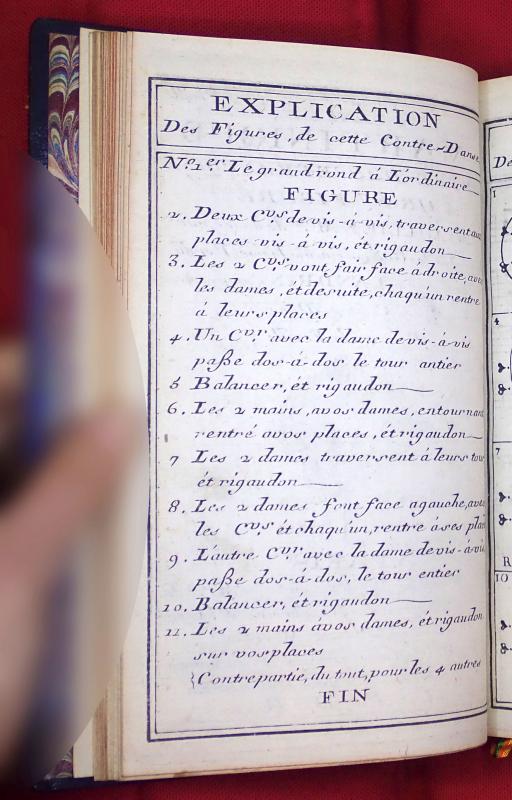 EXPLICATION
Des Figures, de cette Contre-Danse
No. 1.er Le grand rond à L'ordinaire
FIGURE
2. Deux C.vrs de vis-à-vis, traversent aux
places vis-à vis, ét rigaudon
3. Les 2 C.vrs vont fair face à droite, avec
les dames, ét de suite, chaqu'un rentre
à leurs places
4. Un C.vr avec la dame de vis-à-vis
paße dos-à-dos le tour antier
5 Balancer, ét rigaudon
6. Les 2 mains, avos dames, entournant
rentré avos places, ét rigaudon
7 Les 2 dames traversent à leurs tour
ét rigaudon
8. Les 2 dames font face a gauche, avec
les C.vrs ét chaqu'un, rentre à ses places
9. L'autre C.vr avec la dame de vis-à-vis
paße dos-à-dos, le tour entier
10. Balancer, ét rigaudon
11. Les 2 mains àvos dames, ét rigaudon
sur vos places
Contrepartie, du tout, pour les 4 autres
FIN
De
1
4
7
R
10